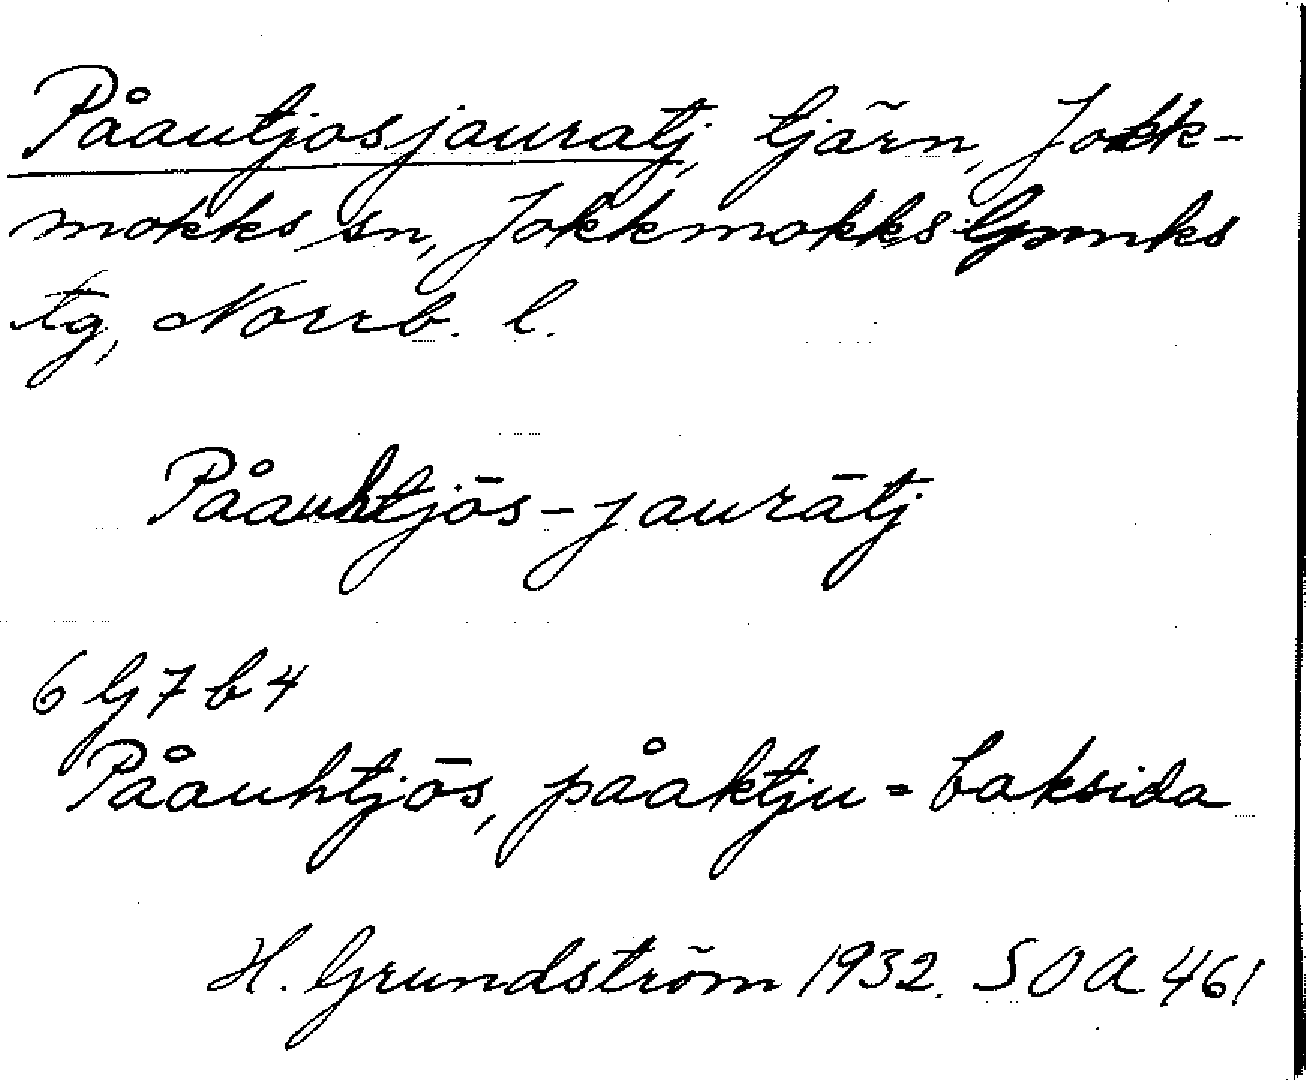 Påautjosjauratj, tjärn, Jokk-
mokks sn, Jokkmokks
tg, Norrb. l.
Påauhtjōs-jaurātj
6 G 7 b 4
Påauhtjōs, påaktju = baksida
H. Grundström 1932. SOA 461